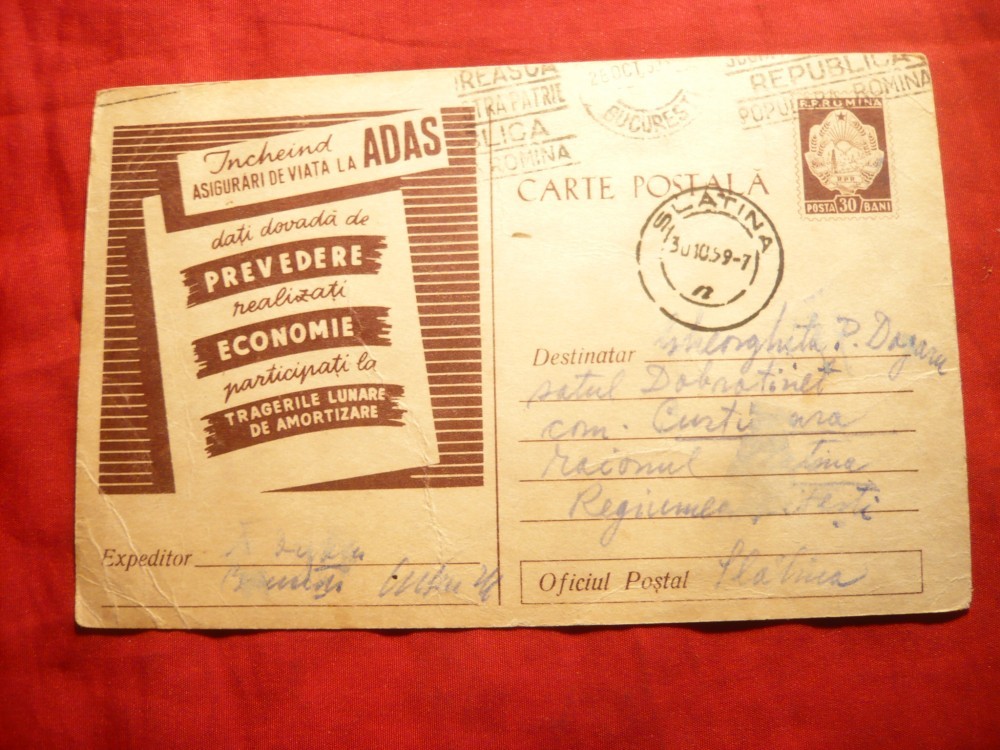 Încheind
ASIGURĂRI DE VIAȚĂ LA ADAS
dați dovadă de
PREVEDERE
realizați
ECONOMIE
participați la
TRAGERILE LUNARE
DE AMORTIZARE
Expeditor
REASCĂ
TRA PATRIE
BLICA
ROMINA
26 OCT
BUCUREȘTI
REPUBLICA
POPULARA ROMINA
R.P. ROMINA
R P R
POSTA 30 BANI
CARTE POȘTALĂ
SLATINA
30.10.59-7
Destinatar Gheorghița P. Dogaru
satul Dobrotinet
com.
raionul
Regiunea
Oficiul Poștal Slatina